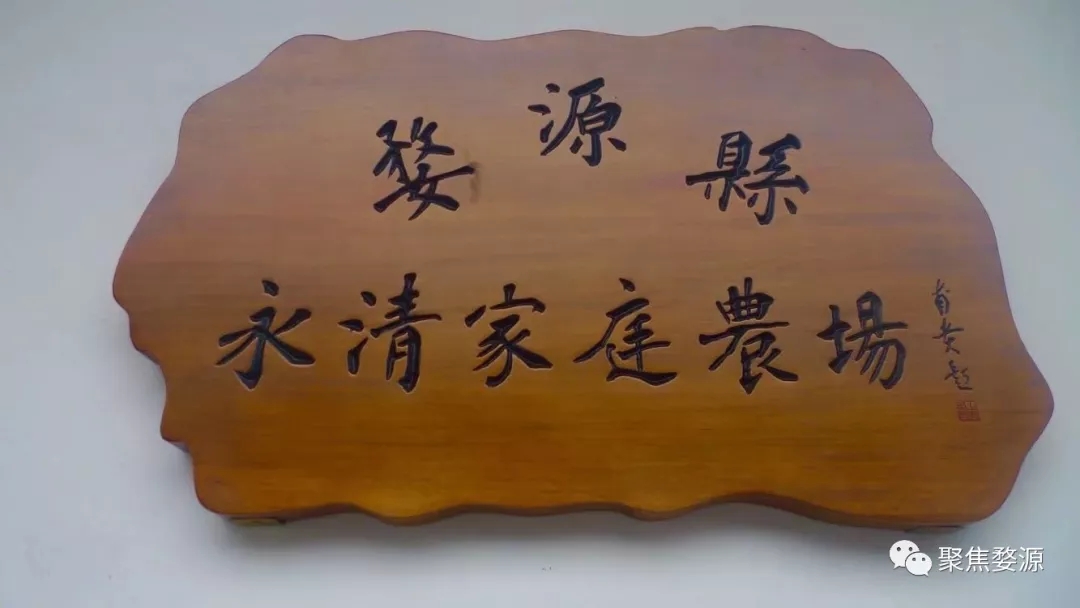 婺源縣
永清家庭農場
聚焦婺源